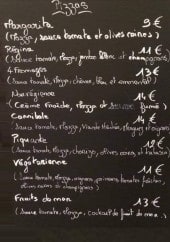 Pizzas
Margarita 9 €
(Mozza, sauce tomate et olives noires)
Régina 11 €
(Sauce tomate, Mozza, jambon blanc et champignons)
4 fromages 13 €
(Sauce tomate, Mozza, chèvre, bleu et emmental)
Norvégienne 14 €
(Crème fraîche, Mozza et saumon fumé)
Cannibale 14 €
(Sauce tomate, Mozza, Viande Hachée,
Piquante 12 €
(Sauce tomate, Mozza, chorizo, Olives noires, et
Végétarienne 11 €
(Sauce tomate, Mozza, oignons, poivrons, tomates fraîches,
Olives noires et champignons)
Fruits de mer 13 €
(Sauce tomate, Mozza, cocktail de fruit de mer)